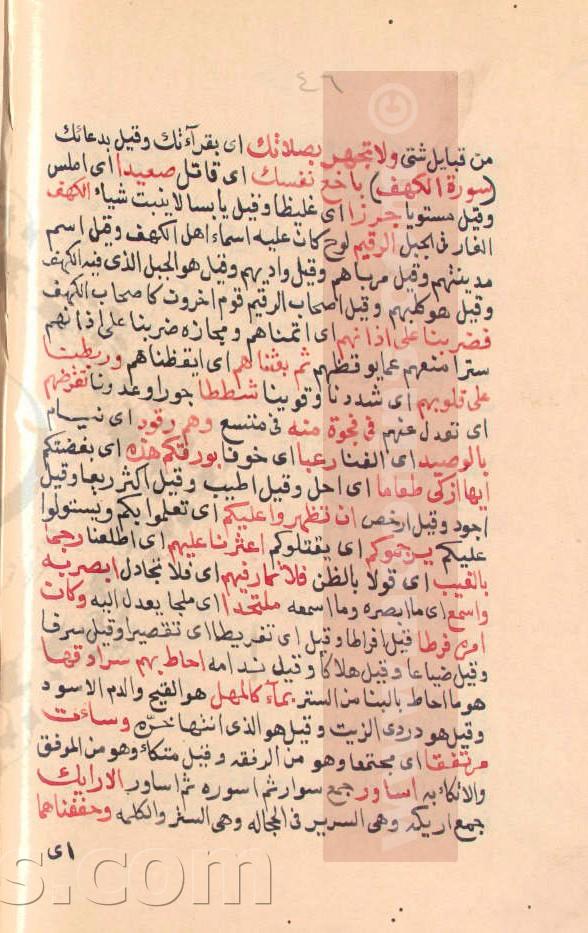 ٤٦
من قبايل شتى ولا تجهر بصلاتك اى بقرآءتك وقيل بدعائك
(سورة الكهف) باخع نفسك اى قاتل صعيدا اى املس
وقيل مستويا جرزا اى غليظا وقيل يابسا لا ينبت شياء الكهف
الغار فى الجبل الرقيم لوح كان عليه اسماء اهل الكهف وقيل اسم
مدينتهم وقيل هو واديهم وقيل هو الجبل الذى فيه الكهف
وقيل هو كلبهم وقيل اصحاب الرقيم قوم اخرون كاصحاب الكهف
فضربنا على اذانهم اى انمناهم ومجازه ضربنا على اذانهم
سترا منعهم عما يوقظهم ثم بعثناهم اى ايقظناهم وربطنا
على قلوبهم اى شددنا وقوينا شططا جورا وعدونا تقرضهم
اى تعدل عنهم فى فجوة منه فى متسع وهم رقود اى نيام
بالوصيد اى الفنا رعبا اى خوفا بورقكم هذه اى بفضتكم
ايها ازكى طعاما اى احل وقيل اطيب وقيل اكثر ريعا وقيل
اجود وقيل ارخص ان يظهروا عليكم اى تعلموا بكم ويستولوا
عليكم يرجموكم اى يقتلوكم اعثرنا عليهم اى اطلعنا رجما
بالغيب اى قولا بالظن فلا تمار فيهم اى فلا تجادل ابصر به
واسمع اى ما ابصره وما اسمعه ملتحدا اى ملجا يعدل اليه وكان
امره فرطا قيل افراطا وقيل اى تفريطا اى تقصيرا وقيل سرفا
وقيل ضياعا وقيل هلاكا وقيل ندامه احاط بهم سرادقها
هو ما احاط بالبنا من الستر بمآء كالمهل هو القيح والدم الاسود
وقيل هو دردى الزيت وقيل هو الذى انتها حره وساءت
مرتفقا اى مجتمعا وهو من الرفقه وقيل متكاء وهو من الموفق
والاتكاء به اساور جمع سوار ثم اسوره ثم اساور الارايك
جمع اريكه وهى السرير فى الحجاله وهى الستر والكلمه وحففناهما
اى
s.com